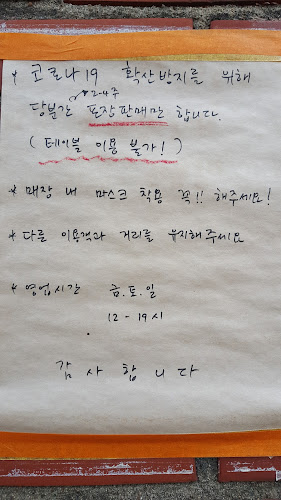 * 코로나19 확산방지를 위해
2-4주
당분간 포장판매만 합니다.
( 테이블 이용 불가! )
* 매장 내 마스크 착용 꼭!! 해주세요!
* 다른 이용객과 거리를 유지해주세요
* 영업시간 금.토.일
12 - 19시
감사합니다